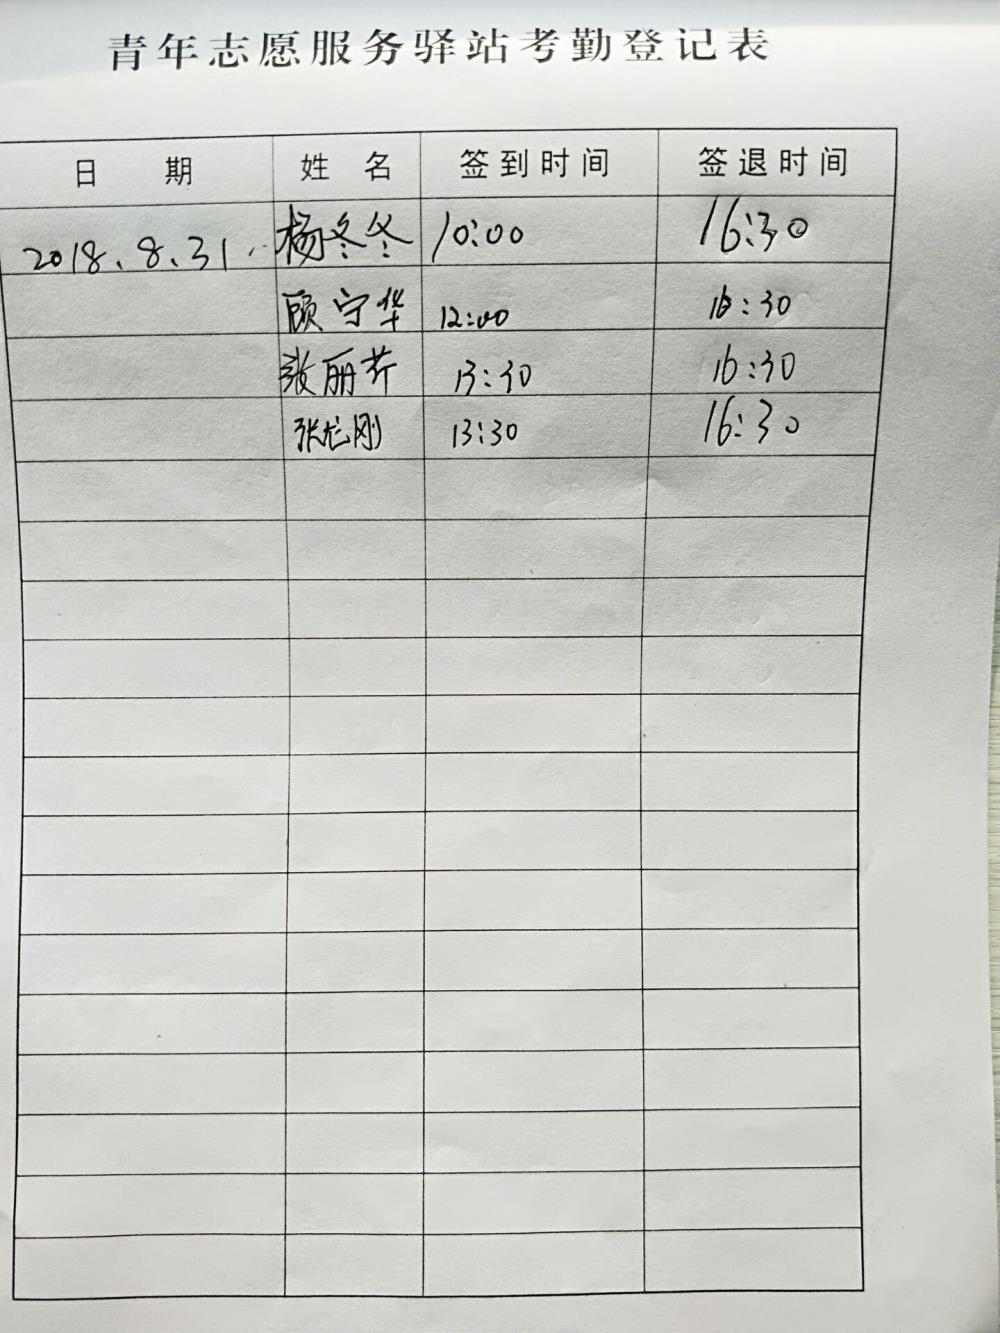 青年志愿服务驿站考勤登记表
日 期 姓 名 签到时间 签退时间
2018.8.31. 杨冬冬 10:00 16:30
顾守华 12:00 16:30
张丽芹 13:30 16:30
张龙刚 13:30 16:30